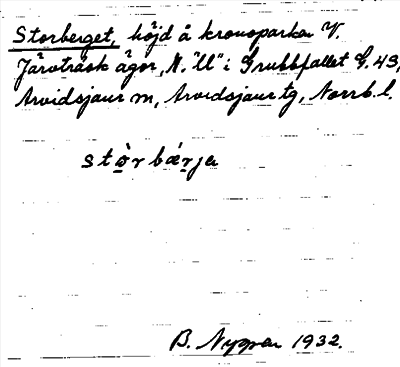 Storberget, höjd å kronoparka V.
Järvträsk ägor, N. "U" i Grubbfallet G. 43,
Arvidsjaur m, Arvidsjaur tg, Norrb. l.
stò̱r bǽṟja
B. Nygren 1932.